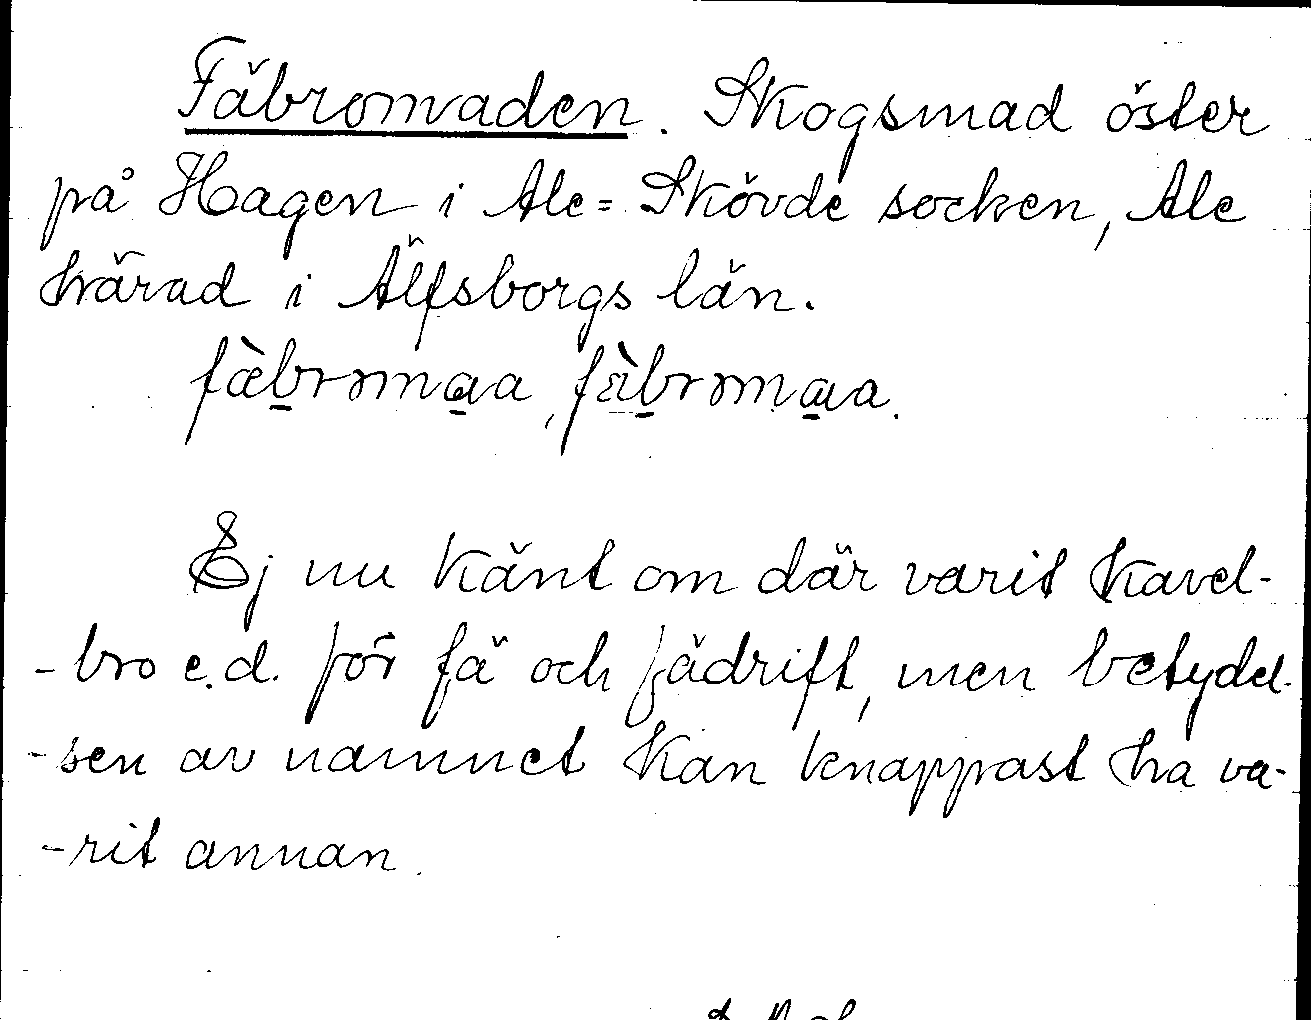 Fäbromaden. Skogsmad öster
på Hagen i Ale=Skövde socken, Ale
härad i Älfsborgs län.
fæ̀bromaa, fàbromaa.
Ej nu känt om där varit kavel-
-bro e.d. för fä och fädrift, men betydel-
-sen av namnet kan knappast ha va-
-rit annan.